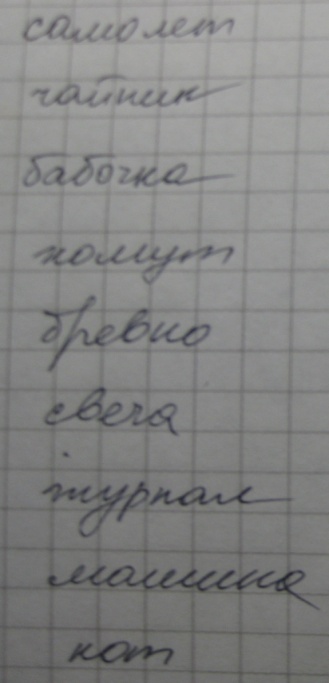 самолет
чайник
бабочка
хомут
бревно
свеча
журнал
машина
кот